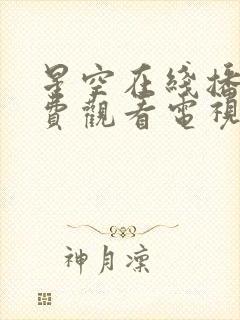 星空在綫播
費觀看電視
神月凜